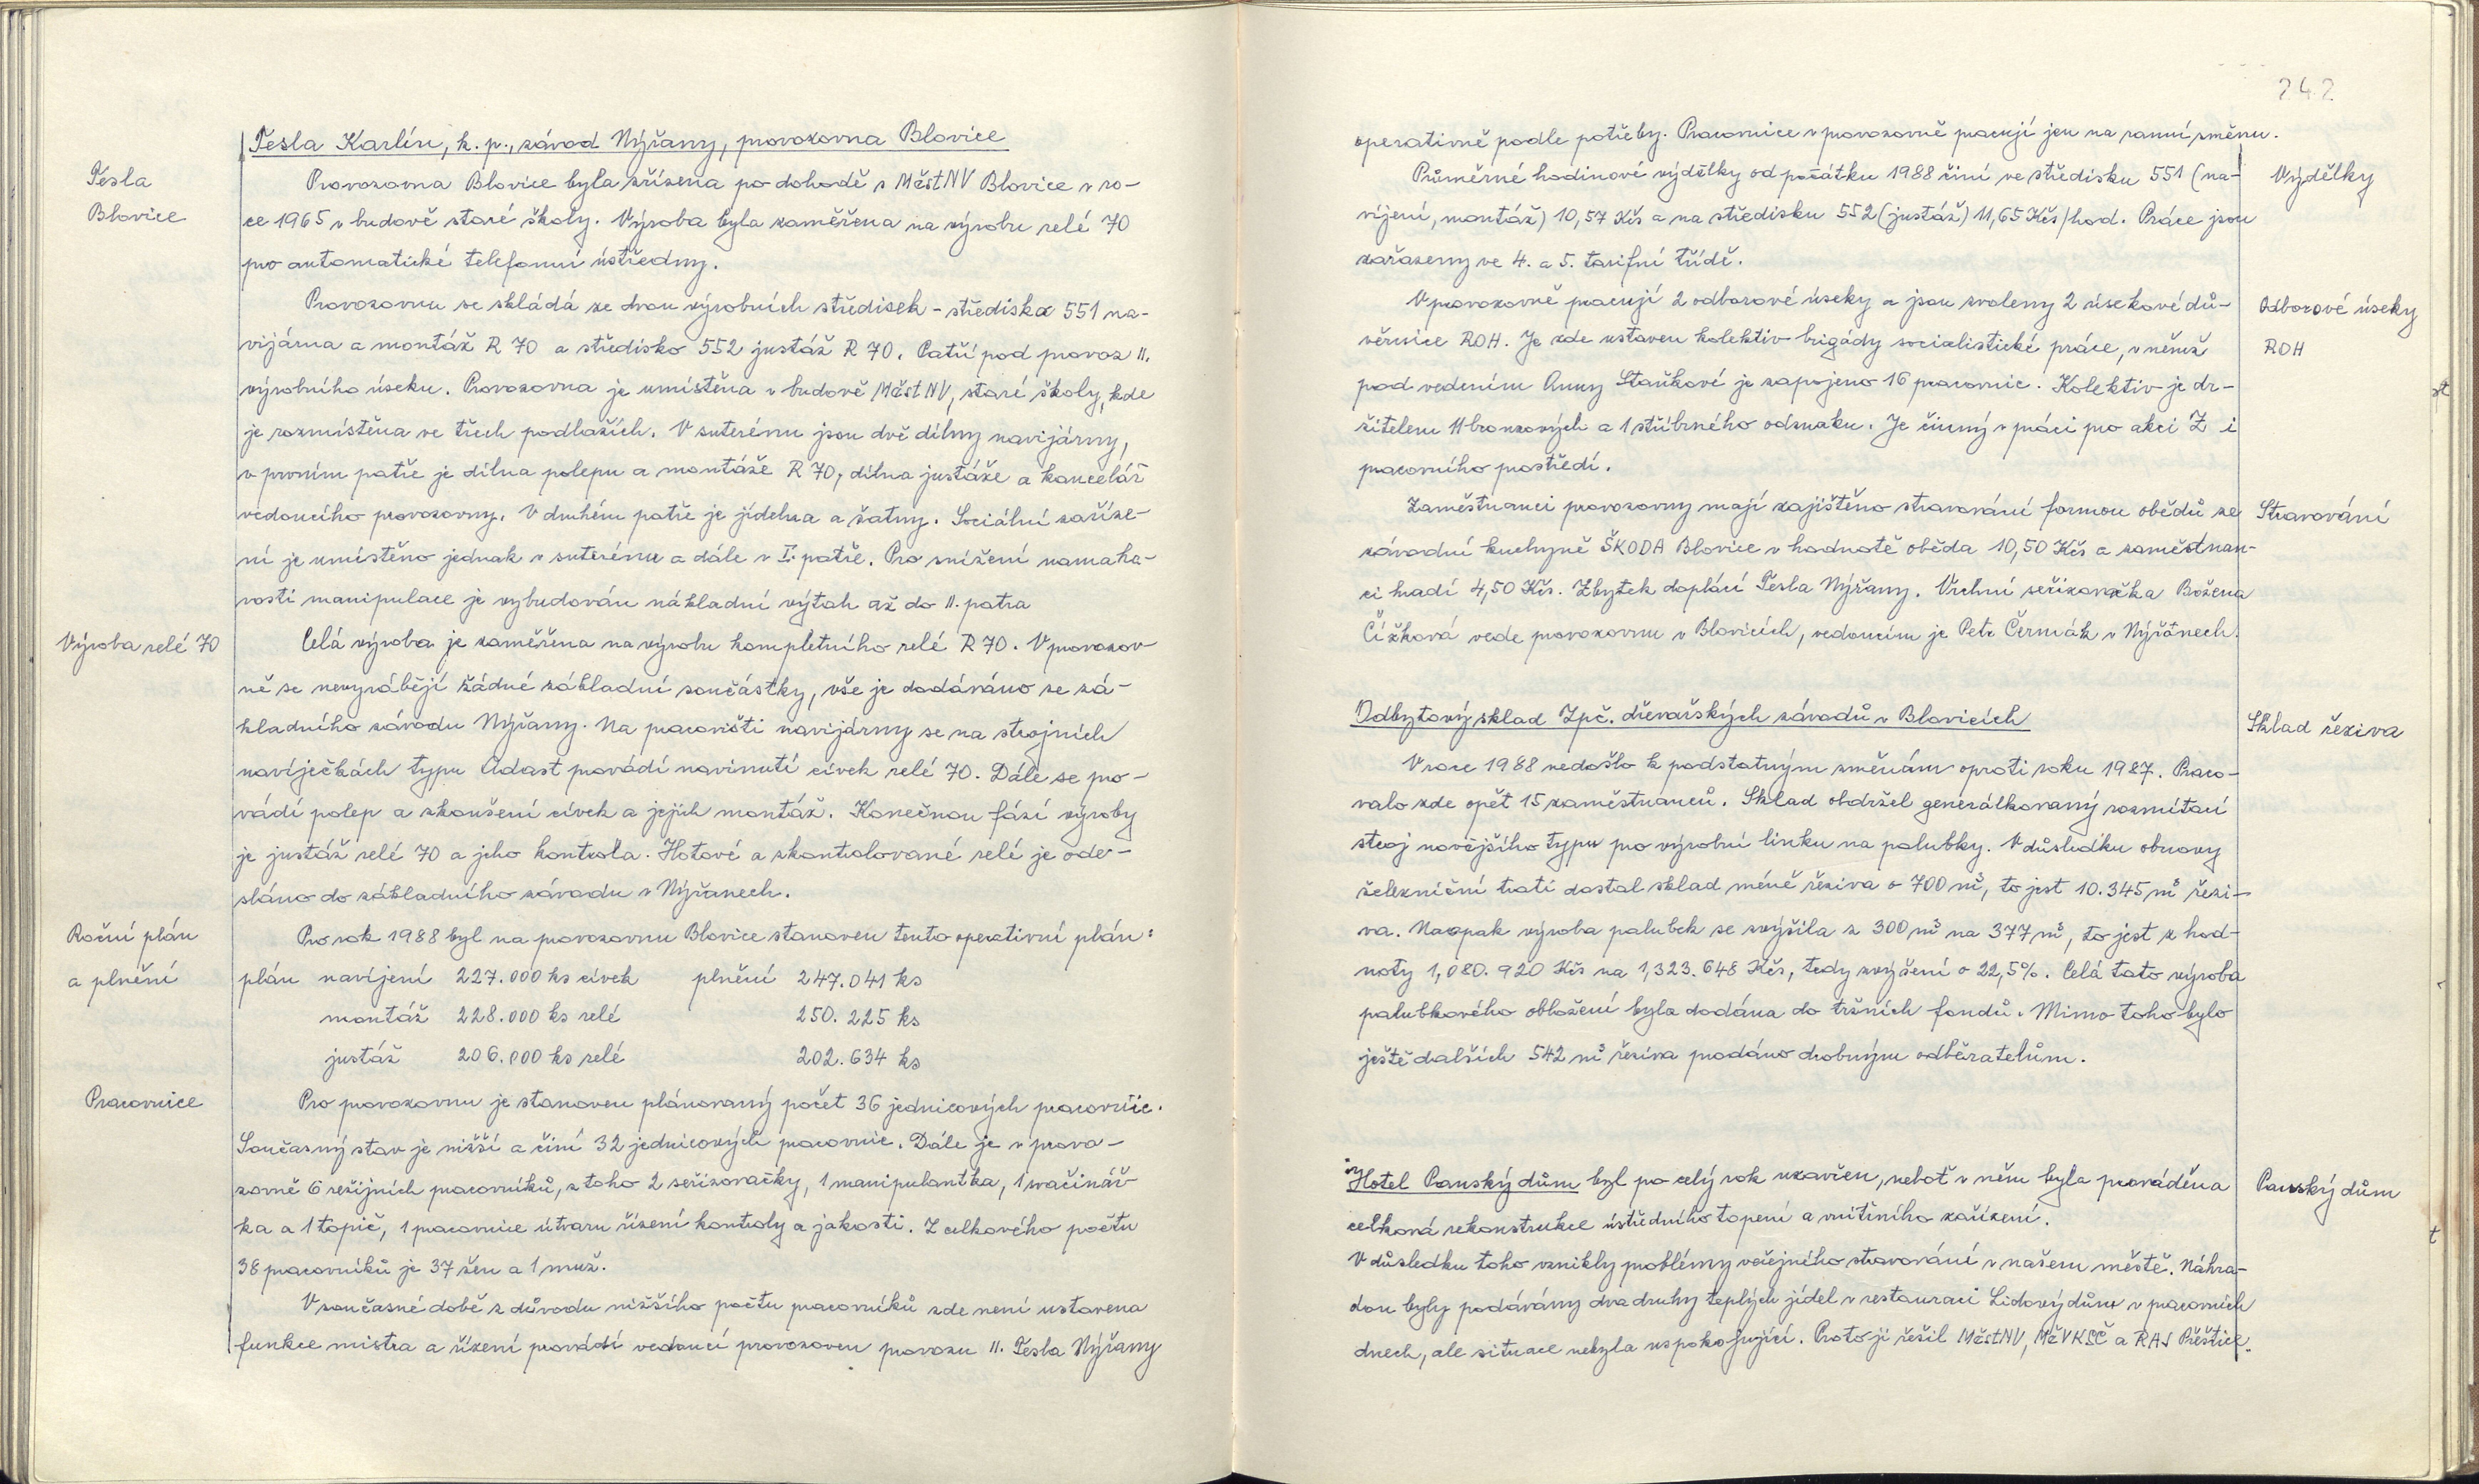 Tesla Karlín, k. p., závod Nýřany, provozovna Blovice
Tesla
Blovice
Provozovna Blovice byla zřízena po dohodě s MěstNV Blovice v ro-
ce 1965 v budově staré školy. Výroba byla zaměřena na výrobu relé 70
pro automatické telefonní ústředny.
Provozovnu se skládá ze dvou výrobních středisek - střediska 551 na-
vijárna a montáž R 70 a středisko 552 justáž R 70. Patří pod provoz II.
výrobního úseku. Provozovna je umístěna v budově MěstNV, staré školy, kde
je rozmístěna ve třech podlažích. V suterénu jsou dvě dílny navijárny,
v prvním patře je dílna polepu a montáže R 70, dílna justáže a kancelář
vedoucího provozovny. V druhém patře je jídelna a šatny. Sociální zaříze-
ní je umístěno jednak v suterénu a dále v I. patře. Pro snížení namaha-
vosti manipulace je vybudován nákladní výtah až do II. patra
Výroba relé 70
Celá výroba je zaměřena na výrobu kompletního relé R 70. V provozov-
ně se nevyrábějí žádné základní součástky, vše je dodáváno ze zá-
kladního závodu Nýřany. Na pracovišti navijárny se na strojních
navíječkách typu Adast provádí navinutí cívek relé 70. Dále se pro-
vádí polep a zkoušení cívek a jejich montáž. Konečnou fází výroby
je justáž relé 70 a jeho kontrola. Hotové a zkontrolované relé je ode-
sláno do základního závodu v Nýřanech.
Roční plán
a plnění
Pro rok 1988 byl na provozovnu Blovice stanoven tento operativní plán:
plán navíjení 227.000 ks cívek plnění 247.041 ks
montáž 228.000 ks relé 250.225 ks
justáž 206.000 ks relé 202.634 ks
Pracovnice
Pro provozovnu je stanoven plánovaný počet 36 jednicových pracovnic.
Současný stav je nižší a činí 32 jednicových pracovnic. Dále je v provo-
zovně 6 režijních pracovníků, z toho 2 seřizovačky, 1 manipulantka, 1 svačinář-
ka a 1 topič, 1 pracovnice útvaru řízení kontroly a jakosti. Z celkového počtu
38 pracovníků je 37 žen a 1 muž.
V současné době z důvodu nižšího počtu pracovníků zde není ustavena
funkce mistra a řízení provádí vedoucí provozoven provozu II. Tesla Nýřany
242
operativně podle potřeby. Pracovnice v provozovně pracují jen na ranní směnu.
Výdělky
Průměrné hodinové výdělky od počátku 1988 činí ve středisku 551 (na-
víjení, montáž) 10,57 Kčs a na středisku 552 (justáž) 11,65 Kčs/hod. Práce jsou
zařazeny ve 4. a 5. tarifní třídě.
Odborové úseky
ROH
V provozovně pracují 2 odborové úseky a jsou zvoleny 2 úsekové dů-
věrnice ROH. Je zde ustaven kolektiv brigády socialistické práce, v němž
pod vedením Anny Staňkové je zapojeno 16 pracovnic. Kolektiv je dr-
žitelem 11 bronzových a 1 stříbrného odznaku. Je činný v práci pro akci Z i
pracovního prostředí.
Stravování
Zaměstnanci provozovny mají zajištěno stravování formou obědů ze
závodní kuchyně ŠKODA Blovice v hodnotě oběda 10,50 Kčs a zaměstnan-
ci hradí 4,50 Kčs. Zbytek doplácí Tesla Nýřany. Vrchní seřizovačka Božena
Čížková vede provozovnu v Blovicích, vedoucím je Petr Čermák v Nýřanech.
Odbytový sklad Zpč. dřevařských závodů v Blovicích
Sklad řeziva
V roce 1988 nedošlo k podstatným změnám oproti roku 1987. Praco-
valo zde opět 15 zaměstnanců. Sklad obdržel generálkovaný rozmítací
stroj novějšího typu pro výrobní linku na palubky. V důsledku obnovy
železniční trati dostal sklad méně řeziva o 700 m³, to jest 10.345 m³ řezi-
va. Naopak výroba palubek se zvýšila z 300 m³ na 377 m³, to jest z hod-
noty 1,080.920 Kčs na 1,323.648 Kčs, tedy zvýšení o 22,5%. Celá tato výroba
palubkového obložení byla dodána do tržních fondů. Mimo toho bylo
ještě dalších 542 m³ řeziva prodáno drobným odběratelům.
Panský dům
Hotel Panský dům byl po celý rok uzavřen, neboť v něm byla prováděna
celková rekonstrukce ústředního topení a vnitřního zařízení.
V důsledku toho vznikly problémy veřejného stravování v našem městě. Náhra-
dou byly podávány dva druhy teplých jídel v restauraci Lidový dům v pracovních
dnech, ale situace nebyla uspokojující. Proto ji řešil MěstNV, MěVKSČ a RAJ Přeštice.